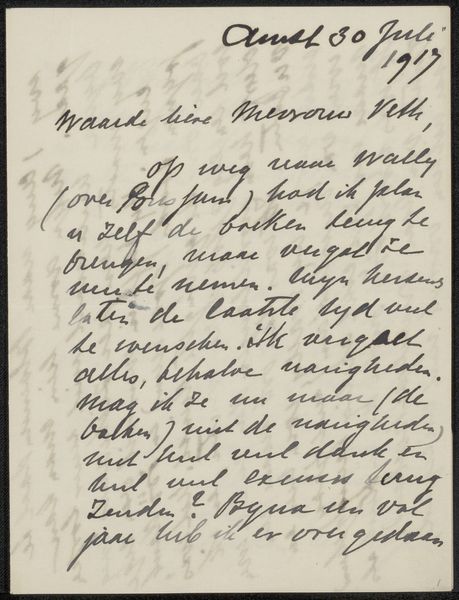 Amst 30 Juli
1917
Waarde lieve Mevrouw Veth,
op weg naar Wally
(over Bussum) had ik plan
u zelf de boeken terug te
brengen, maar vergat ze
mee te nemen. Mijn hersens
laten de laatste tyd veel
te wenschen. Ik vergeet
alles, behalve narigheden.
Mag ik ze nu maar (de
boeken) niet de narigheden)
met heel veel dank en
heel veel excuses terug
zenden? Byna een vol
jaar heb ik er over gedaan